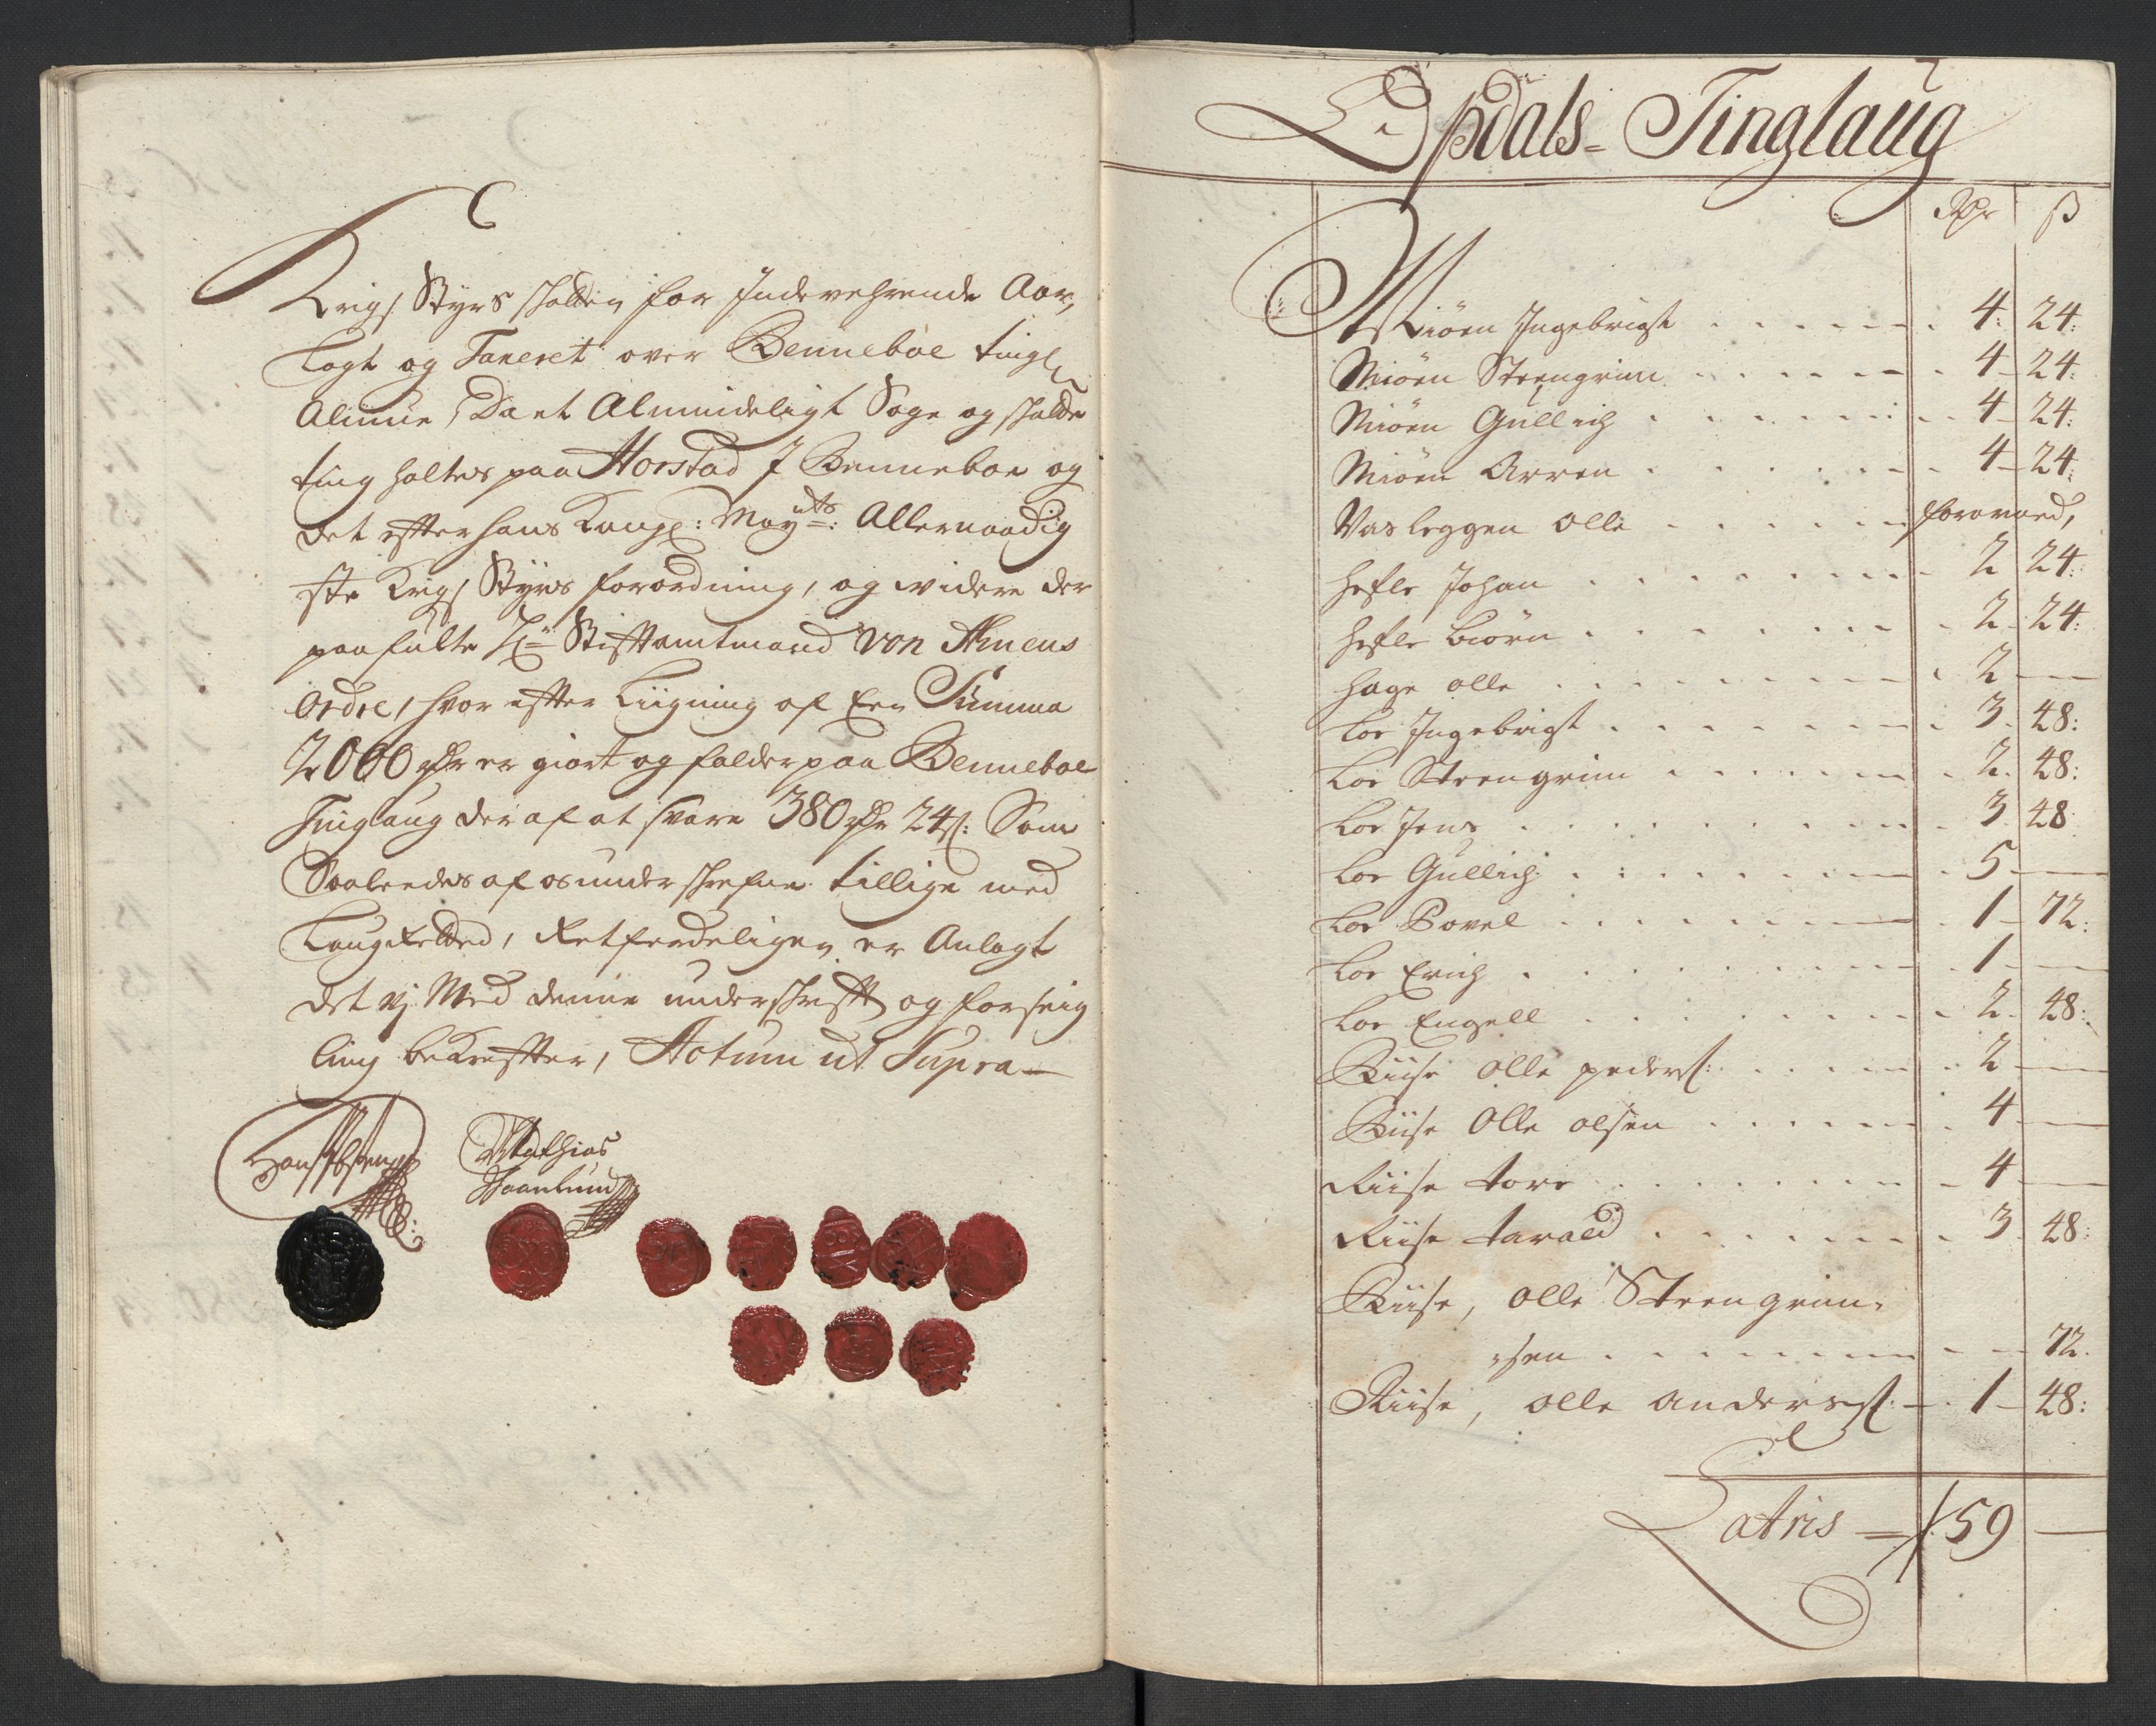 Krigs Styrs skatten for Indeverhrende Aar,
Lagt og Taxeret over Benneboe tingl
Almue, Da et Almindeligt Sage og skatte
ting holtes paa Horstad J Benneboe og
det efter hans Kongl: Mayts: Allernaadig
ste Krigs Styrs forordning, og widere der
paa fulte Hr Stiftamtmand von Ahnens
Ordre, hvor efter Liigning af Een Summa
2000 rdr er giort og falder paa Benneboe
Tinglaug der af at svare 380 rdr 24 s: Som
Saaledes af os underskrefne tillige med
Laugretted, Retferdeligen er Anlagt
det vj Med denne underskrifft og forseig
ling bekreffter, Actum ut Supra
Mathias
Opdals-Tinglaug
Rdr ß
Miøen Ingebrigt 4: 24:
Miøen Steengrim 4 24:
Miøen Gullich 4 24:
Miøen Arren 4 24:
Vasleggen Olle forarmed,
Hefle Johan 2 24:
Hefle Biørn 2 24:
Hage Olle 2 —
Loe Ingebrigt 3 48:
Loe Steengrim 2 48:
Loe Jens 3 48
Loe Gullich 5 —
Loe Povel 1 72:
Loe Erich 1 —
Loe Engell 2 48:
Riise Olle peders: 2 —
Riise Olle olsen 4 —
Riise tore 4 —
Riise tarald 3 48:
Riise, Olle Steengrim
sen 72.
Riise, Olle anders: 1 48:
Latris 59 —